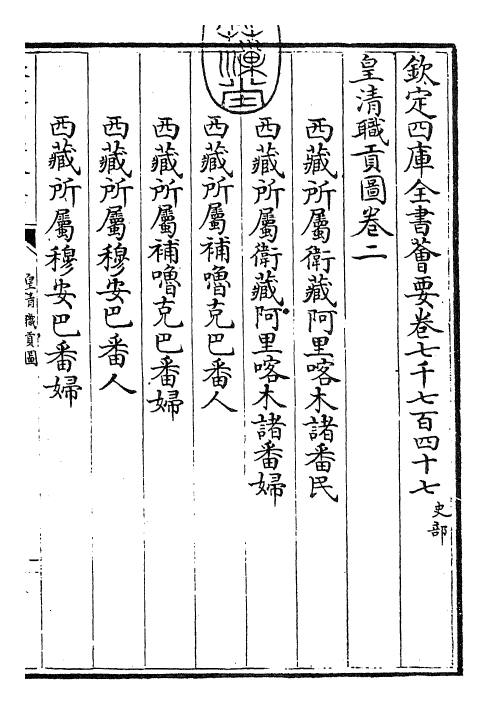 欽定四庫全書薈要卷七千七百四十七
史部
皇清職貢圖卷二
西藏所屬衛藏阿里喀木諸番民
西藏所屬衛藏阿里喀木諸番婦
西藏所屬補嚕克巴番人
西藏所屬補嚕克巴番婦
西藏所屬穆安巴番人
西藏所屬穆安巴番婦
皇清職貢圖